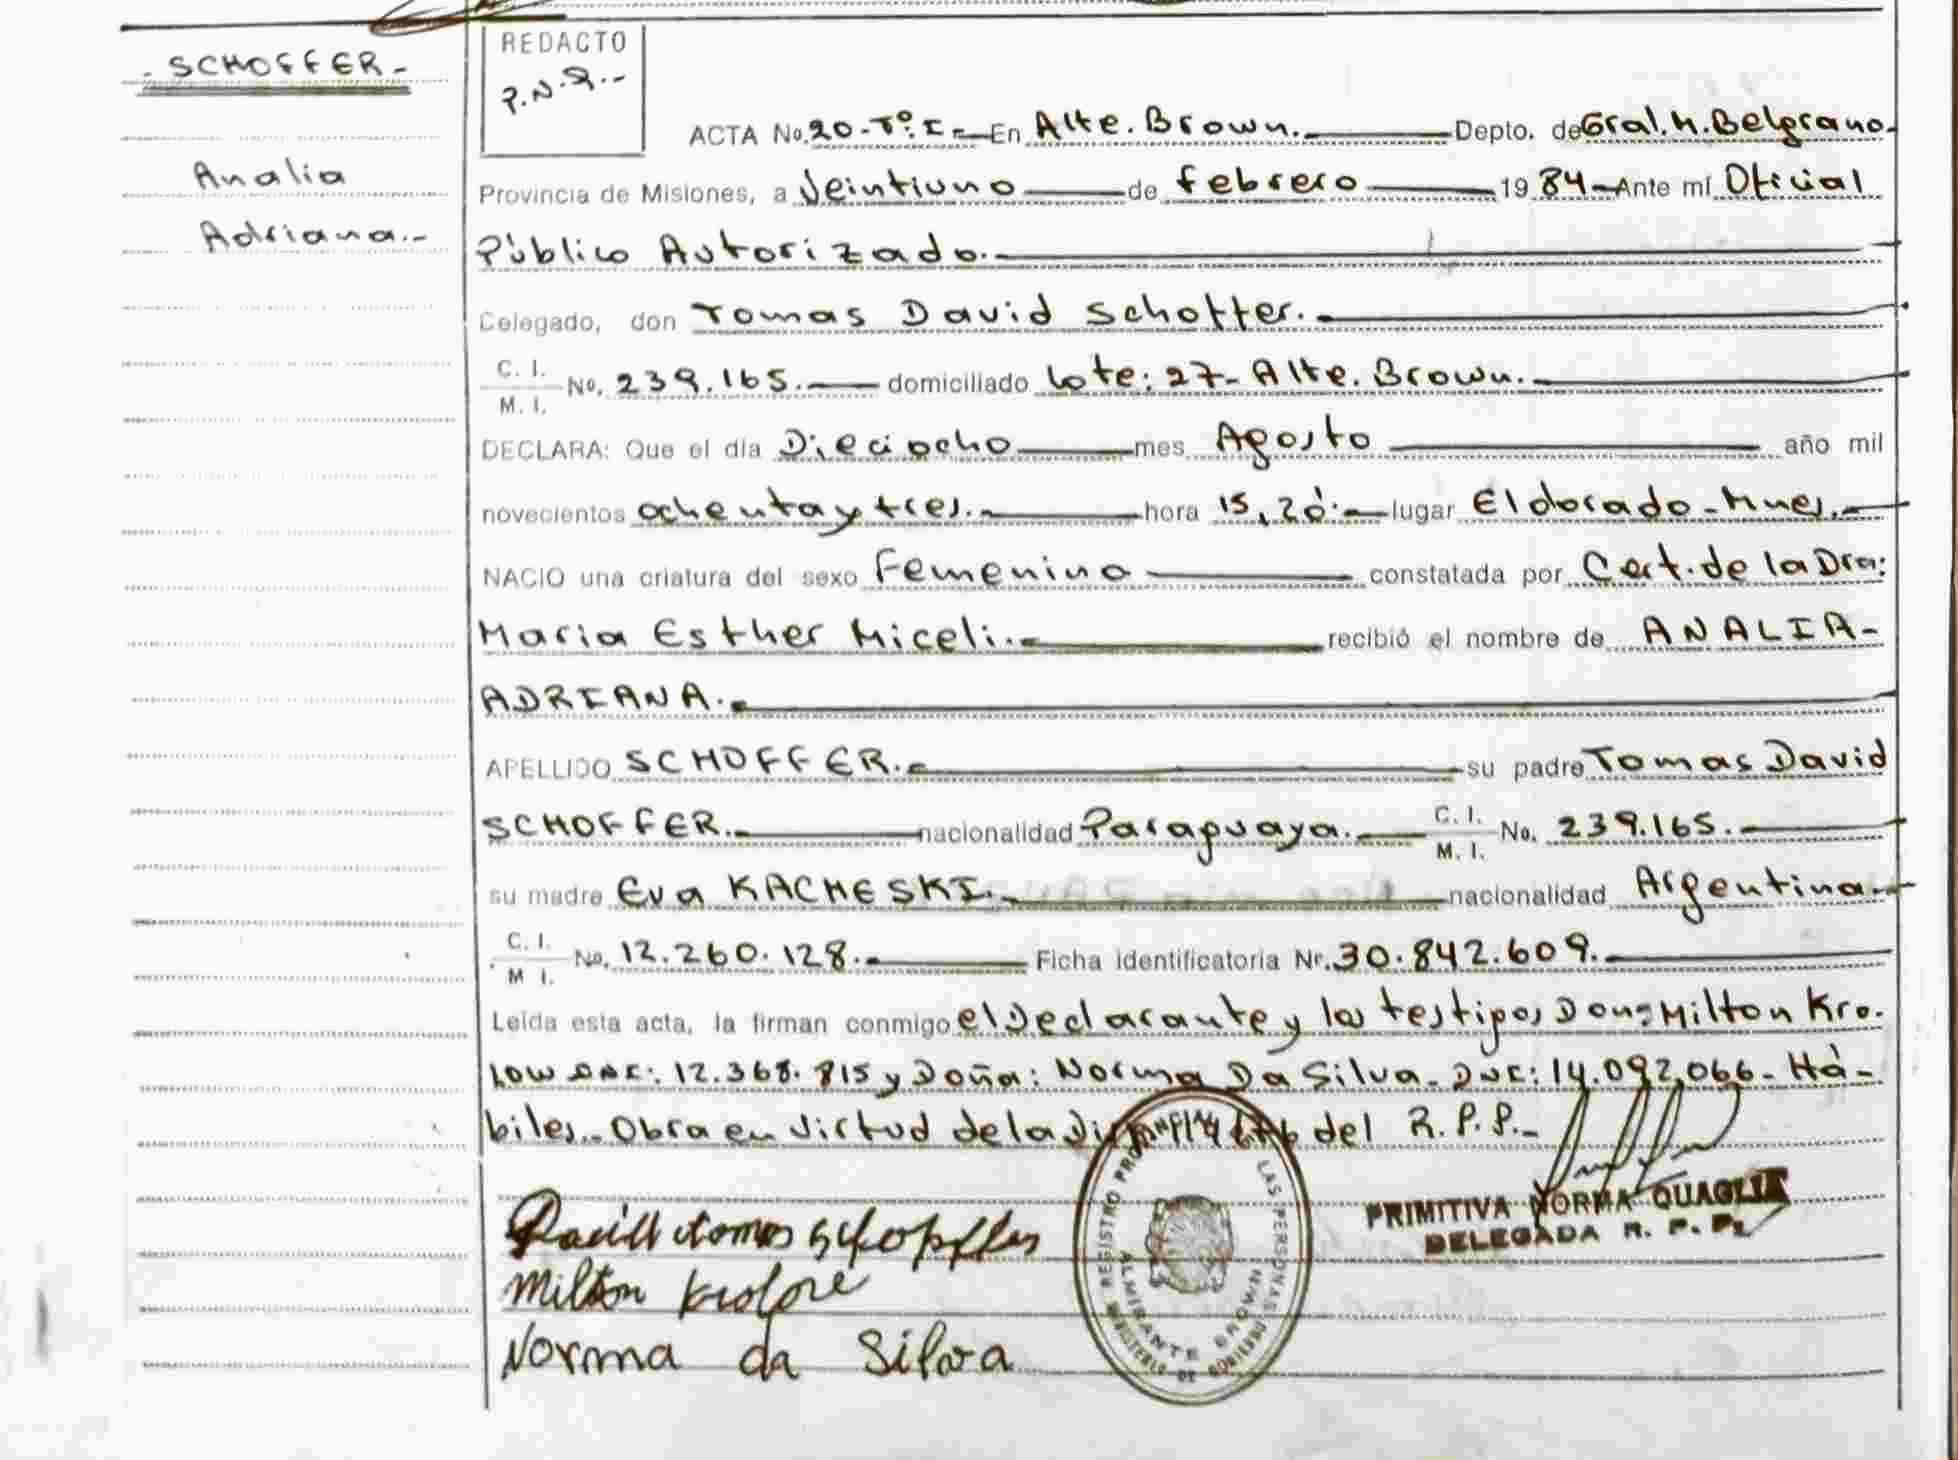 - SCHOFFER -
Analia
Adriana.-
REDACTO
P.N.Q.-
ACTA No. 20-Tº I.- En Alte. Brown. Depto. de Gral. M. Belgrano-
Provincia de Misiones, a Veintiuno de febrero 19 84- Ante mí Oficial
Público Autorizado.-
Delegado, don Tomas David Schoffer.-
C. I. M. I. No. 239.165.- domiciliado Lote: 27- Alte. Brown.-
DECLARA: Que el día Dieciocho mes Agosto año mil
novecientos ochenta y tres.- hora 15,20.- lugar Eldorado-Mnes.-
NACIO una criatura del sexo Femenino constatada por Cert. de la Dra:
Maria Esther Miceli.- recibió el nombre de ANALIA-
ADRIANA.-
APELLIDO SCHOFFER.- su padre Tomas David
SCHOFFER.- nacionalidad Paraguaya.- C. I. M. I. No. 239.165.-
su madre Eva KACHESKI.- nacionalidad Argentina.-
C. I. M I. No. 12.260.128.- Ficha identificatoria Nr. 30.842.609.-
Leída esta acta, la firman conmigo el Declarante y los testigos Don: Milton Kro-
low DNI: 12.368.815 y Doña: Norma Da Silva- DNI: 14.092.066- Há-
biles.- Obra en virtud de la del R.P.P.-
Milton
Norma da Silva
REGISTRO PROVINCIAL DE LAS PERSONAS
ALMIRANTE BROWN
MINISTERIO DE GOBIERNO
PRIMITIVA NORMA QUAGLIA
DELEGADA R. P. P.